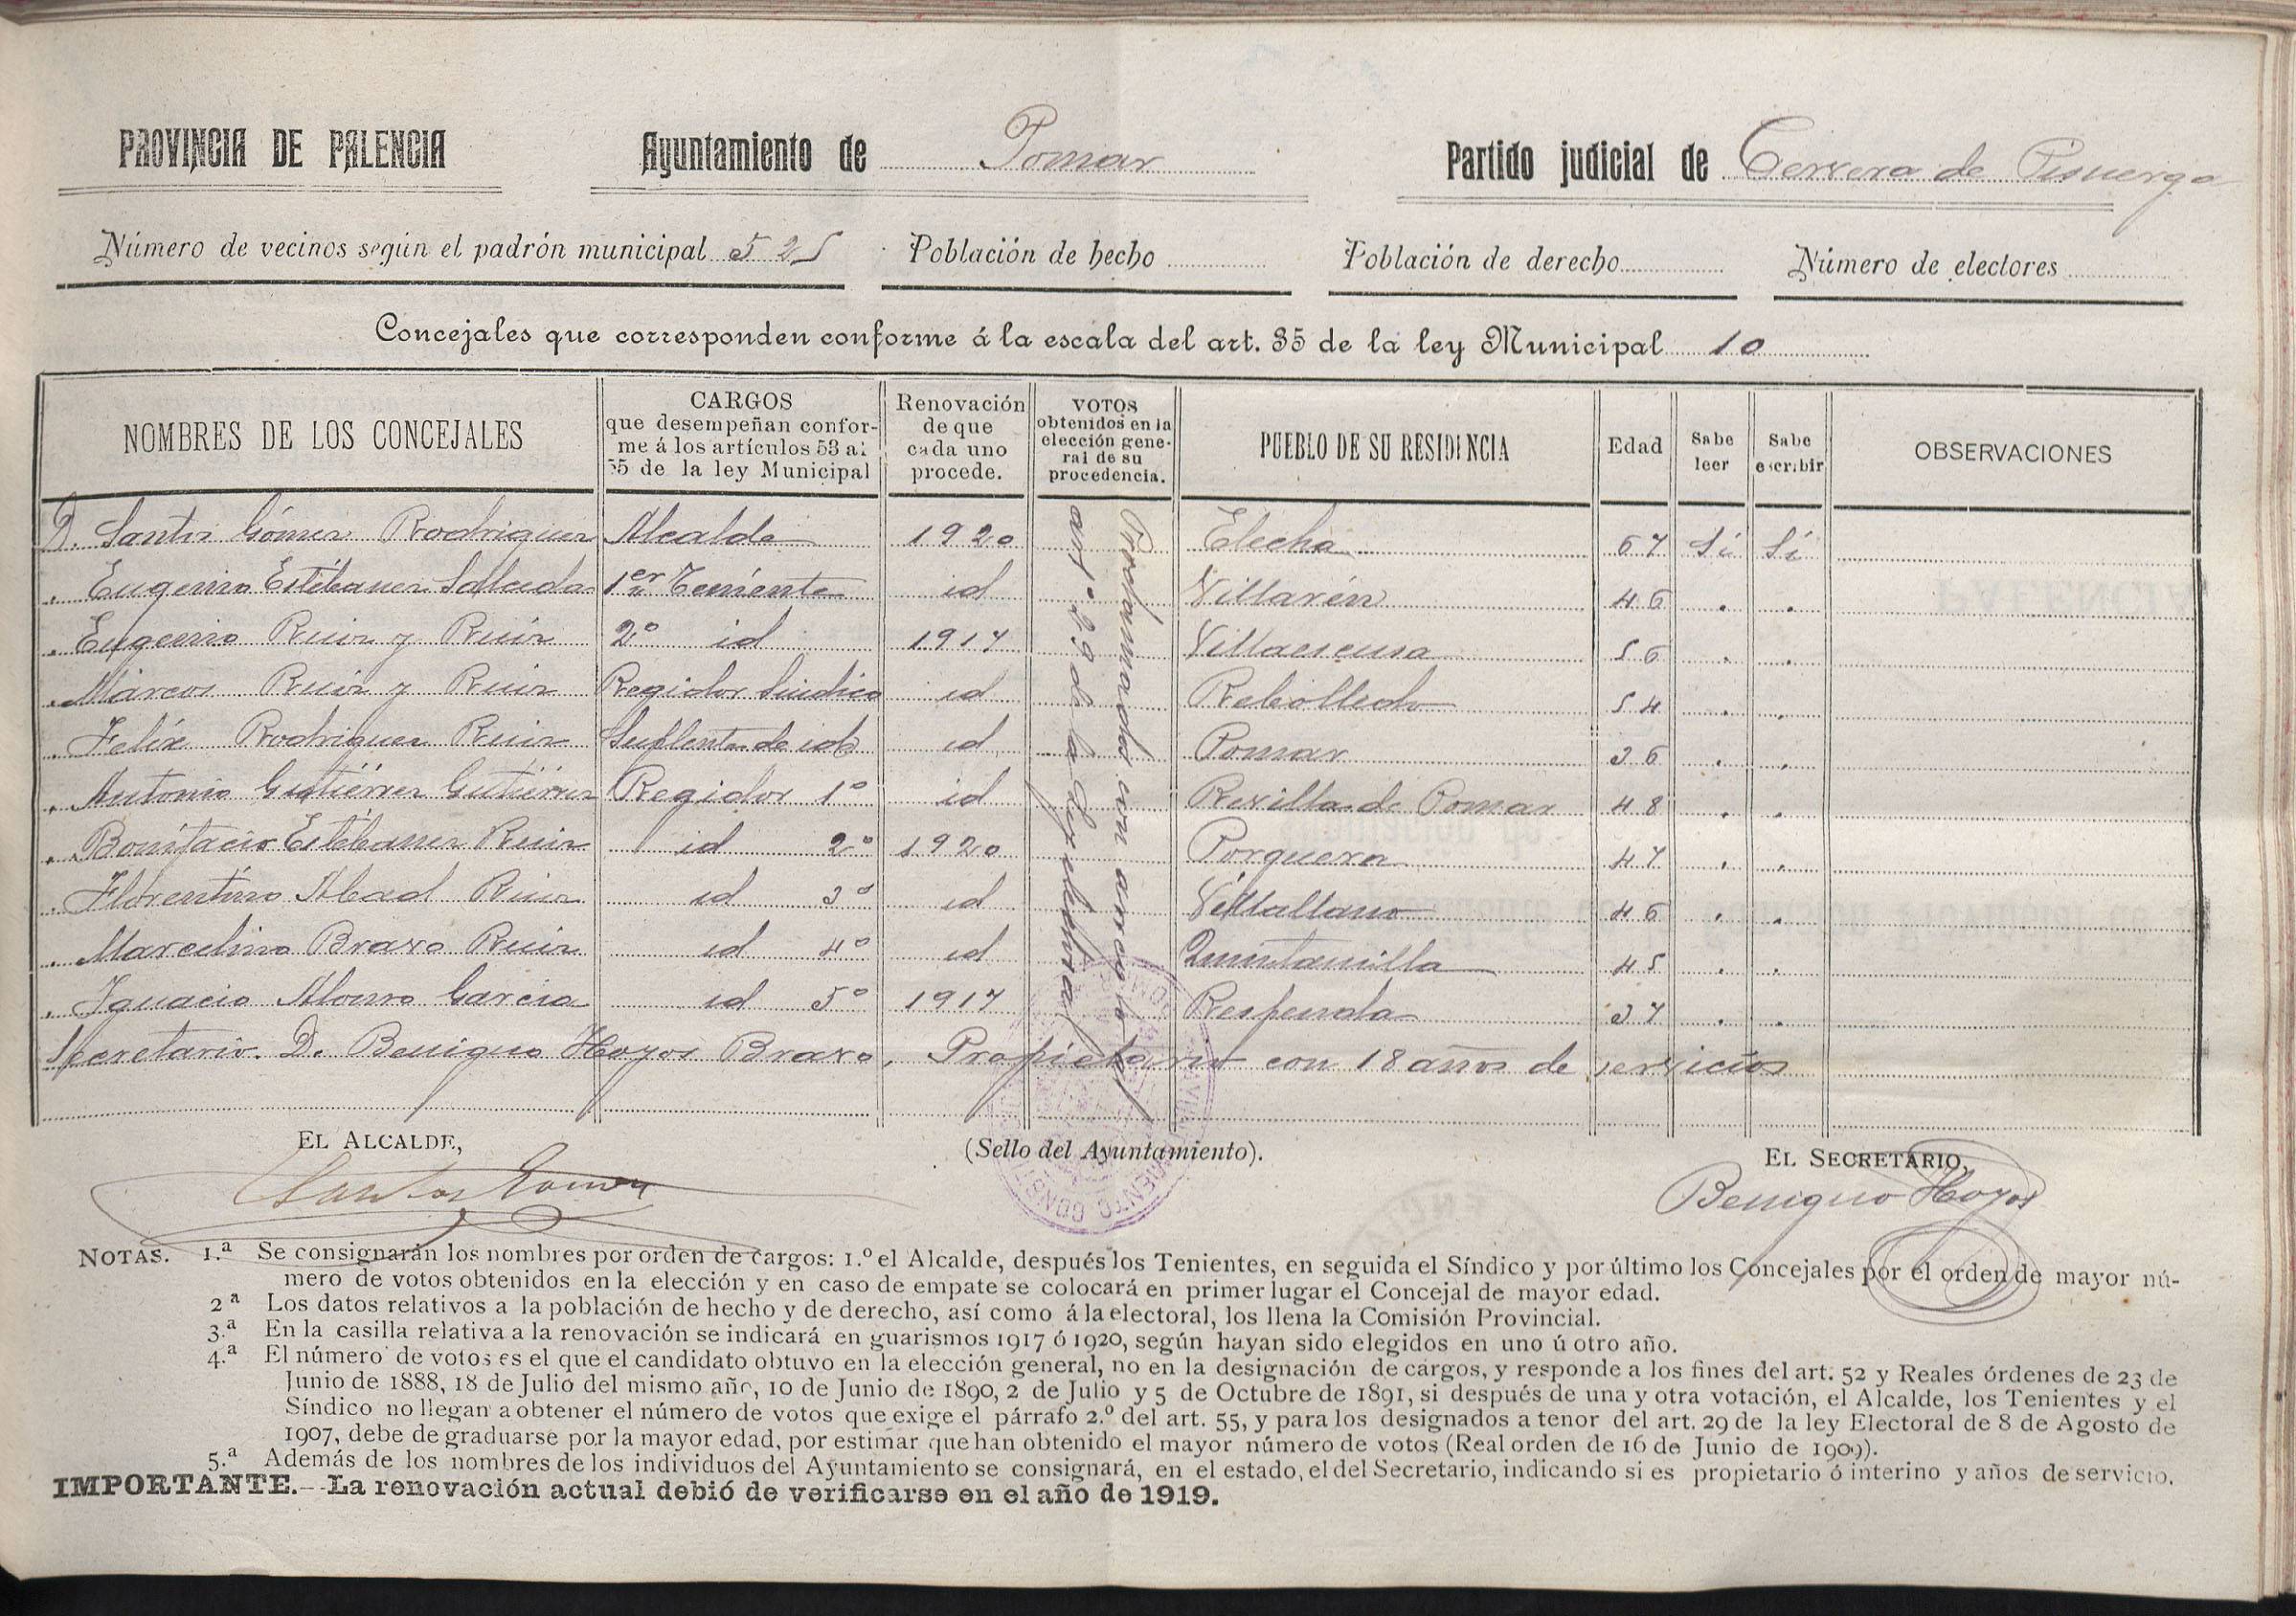 PROVINCIA DE PALENCIA Ayuntamiento de Pomar Partido judicial de Cervera de Pisuerga
Número de vecinos según el padrón municipal 525 Población de hecho Población de derecho Número de electores
Concejales que corresponden conforme á la escala del art. 35 de la ley Municipal 10
NOMBRES DE LOS CONCEJALES
CARGOS
que desempeñan confor-
me á los artículos 53 al
55 de la ley Municipal
Renovación
de que
cada uno
procede.
VOTOS
obtenidos en la
elección gene-
ral de su
procedencia.
PUEBLO DE SU RESIDENCIA
Edad
Sabe
leer
Sabe
escribir
OBSERVACIONES
D. Santos Gómez Rodriguez Alcalde 1920 Elecha 67 Sí Sí
" Eugenio Estébanez Salceda 1er Teniente id Villarén 46 " "
" Eugenio Ruiz y Ruiz 2º id 1917 Villaescusa 56 " "
" Márcos Ruiz y Ruiz Regidor Síndico id Rebolledo 54 " "
" Felíx Rodriguez Ruiz Suplente de id id Pomar 36 " "
" Antonio Gutiérrez Gutiérrez Regidor 1º id Revilla de Pomar 48 " "
" Bonifacio Estébanez Ruiz id 2º 1920 Porquera 47 " "
" Florentino Abad Ruiz id 3º id Villallano 46 " "
" Marcelino Bravo Ruiz id 4º id Quintanilla 45 " "
" Ignacio Alonso García id 5º 1917 Respenda 37 " "
Proclamados con arreglo
art° 29 de la Ley electoral
Secretario. D. Benigno Hoyos Bravo, Propietario con 18 años de servicios
EL ALCALDE, (Sello del Ayuntamiento). EL SECRETARIO,
Santos Gomez Benigno Hoyos
NOTAS. 1.ª Se consignarán los nombres por orden de cargos: 1.º el Alcalde, después los Tenientes, en seguida el Síndico y por último los Concejales por el orden de mayor nú-
mero de votos obtenidos en la elección y en caso de empate se colocará en primer lugar el Concejal de mayor edad.
2ª Los datos relativos a la población de hecho y de derecho, así como á la electoral, los llena la Comisión Provincial.
3.ª En la casilla relativa a la renovación se indicará en guarismos 1917 ó 1920, según hayan sido elegidos en uno ú otro año.
4.ª El número de votos es el que el candidato obtuvo en la elección general, no en la designación de cargos, y responde a los fines del art. 52 y Reales órdenes de 23 de
Junio de 1888, 18 de Julio del mismo año, 10 de Junio de 1890, 2 de Julio y 5 de Octubre de 1891, si después de una y otra votación, el Alcalde, los Tenientes y el
Síndico no llegan a obtener el número de votos que exige el párrafo 2.º del art. 55, y para los designados a tenor del art. 29 de la ley Electoral de 8 de Agosto de
1907, debe de graduarse por la mayor edad, por estimar que han obtenido el mayor número de votos (Real orden de 16 de Junio de 1909).
5.ª Además de los nombres de los individuos del Ayuntamiento se consignará, en el estado, el del Secretario, indicando si es propietario ó interino y años de servicio.
IMPORTANTE.--La renovación actual debió de verificarse en el año de 1919.